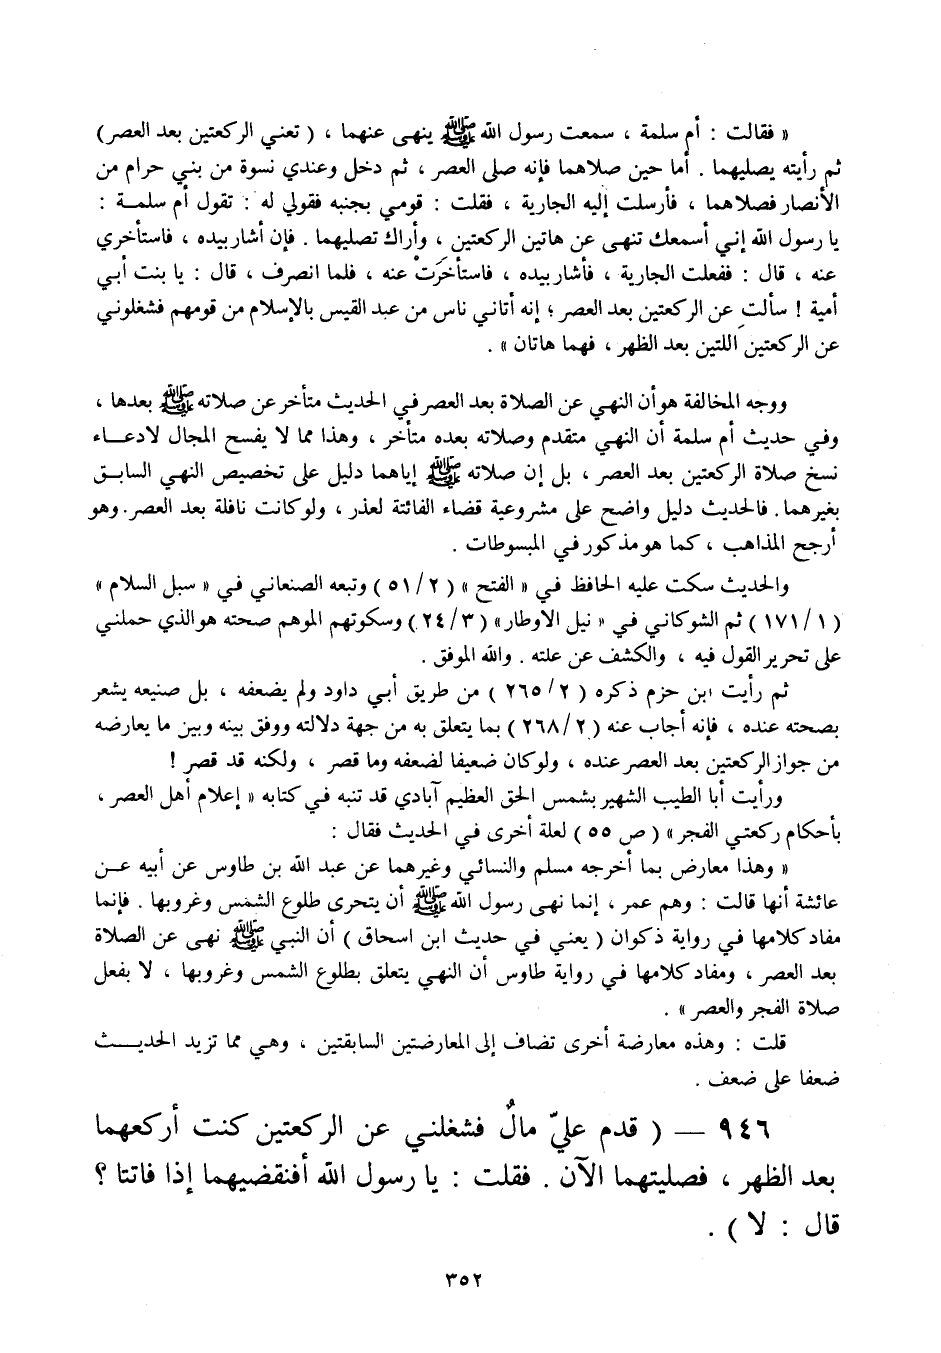 « فقالت : أم سلمة ، سمعت رسول الله ﷺ ينهى عنهما ، ( تعني الركعتين بعد العصر)
ثم رأيته يصليهما . أما حين صلاهما فإنه صلى العصر ، ثم دخل وعندي نسوة من بني حرام من
الأنصار فصلاهما ، فأرسلت إليه الجارية ، فقلت : قومي بجنبه فقولي له : تقول أم سلمـة :
يا رسول الله إني أسمعك تنهى عن هاتين الركعتين ، وأراك تصليهما . فإن أشار بيده ، فاستأخري
عنه ، قال : ففعلت الجارية ، فأشار بيده ، فاستأخَرَتْ عنه ، فلما انصرف ، قال : يا بنت أبي
أمية ! سألتِ عن الركعتين بعد العصر ؛ إنه أتاني ناس من عبد القيس بالإسلام من قومهم فشغلوني
عن الركعتين اللتين بعد الظهر ، فهما هاتان » .
ووجه المخالفة هو أن النهي عن الصلاة بعد العصر في الحديث متأخر عن صلاته ﷺ بعدها ،
وفي حديث أم سلمة أن النهي متقدم وصلاته بعده متأخر ، وهذا مما لا يفسح المجال لادعـاء
نسخ صلاة الركعتين بعد العصر ، بل إن صلاته ﷺ إياهما دليل على تخصيص النهي السابـق
بغيرهما . فالحديث دليل واضح على مشروعية قضاء الفائتة لعذر ، ولو كانت نافلة بعد العصر. وهو
أرجح المذاهب ، كما هو مذكور في المبسوطات .
والحديث سكت عليه الحافظ في « الفتح » ( ٢/ ٥١ ) وتبعه الصنعاني في « سبل السلام »
( ١/ ١٧١ ) ثم الشوكاني في « نيل الاوطار» ( ٣/ ٢٤ ) وسكوتهم الموهم صحته هو الذي حملني
على تحرير القول فيه ، والكشف عن علته . والله الموفق .
ثم رأيت ابن حزم ذكره ( ٢/ ٢٦٥ ) من طريق أبي داود ولم يضعفه ، بل صنيعه يشعر
بصحته عنده ، فإنه أجاب عنه ( ٢/ ٢٦٨ ) بما يتعلق به من جهة دلالته ووفق بينه وبين ما يعارضه
من جواز الركعتين بعد العصر عنده ، ولو كان ضعيفا لضعفه وما قصر ، ولكنه قد قصر !
ورأيت أبا الطيب الشهير بشمس الحق العظيم آبادي قد تنبه في كتابه « إعلام أهل العصر ،
بأحكام ركعتي الفجر » ( ص ٥٥ ) لعلة أخرى في الحديث فقال :
« وهذا معارض بما أخرجه مسلم والنسائي وغيرهما عن عبد الله بن طاوس عن أبيه عـن
عائشة أنها قالت : وهم عمر ، إنما نهى رسول الله ﷺ أن يتحرى طلوع الشمس وغروبها . فإنما
مفاد كلامها في رواية ذكوان ( يعني في حديث ابن اسحاق ) أن النبي ﷺ نهى عن الصلاة
بعد العصر ، ومفاد كلامها في رواية طاوس أن النهي يتعلق بطلوع الشمس وغروبها ، لا بفعل
صلاة الفجر والعصر » .
قلت : وهذه معارضة أخرى تضاف إلى المعارضتين السابقتين ، وهي مما تزيد الحديـث
ضعفا على ضعف .
٩٤٦ — ( قدم عليّ مالٌ فشغلني عن الركعتين كنت أركعهما
بعد الظهر ، فصليتهما الآن . فقلت : يا رسول الله أفنقضيهما إذا فاتتا ؟
قال : لا ) .
٣٥٢